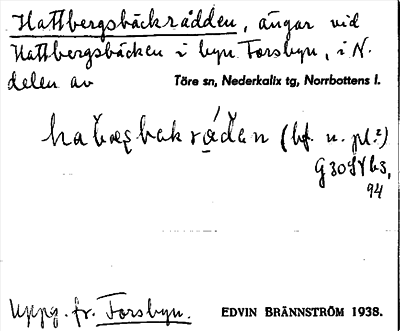 Hattbergsbäckrådden, ängar vid
Hattbergsbäcken i byn Forsbyn, i N.
delen av Töre sn, Nederkalix tg, Norrbottens l.
(bf. n. pl.?)
94
Uppg. fr. Forsbyn. EDVIN BRÄNNSTRÖM 1938.